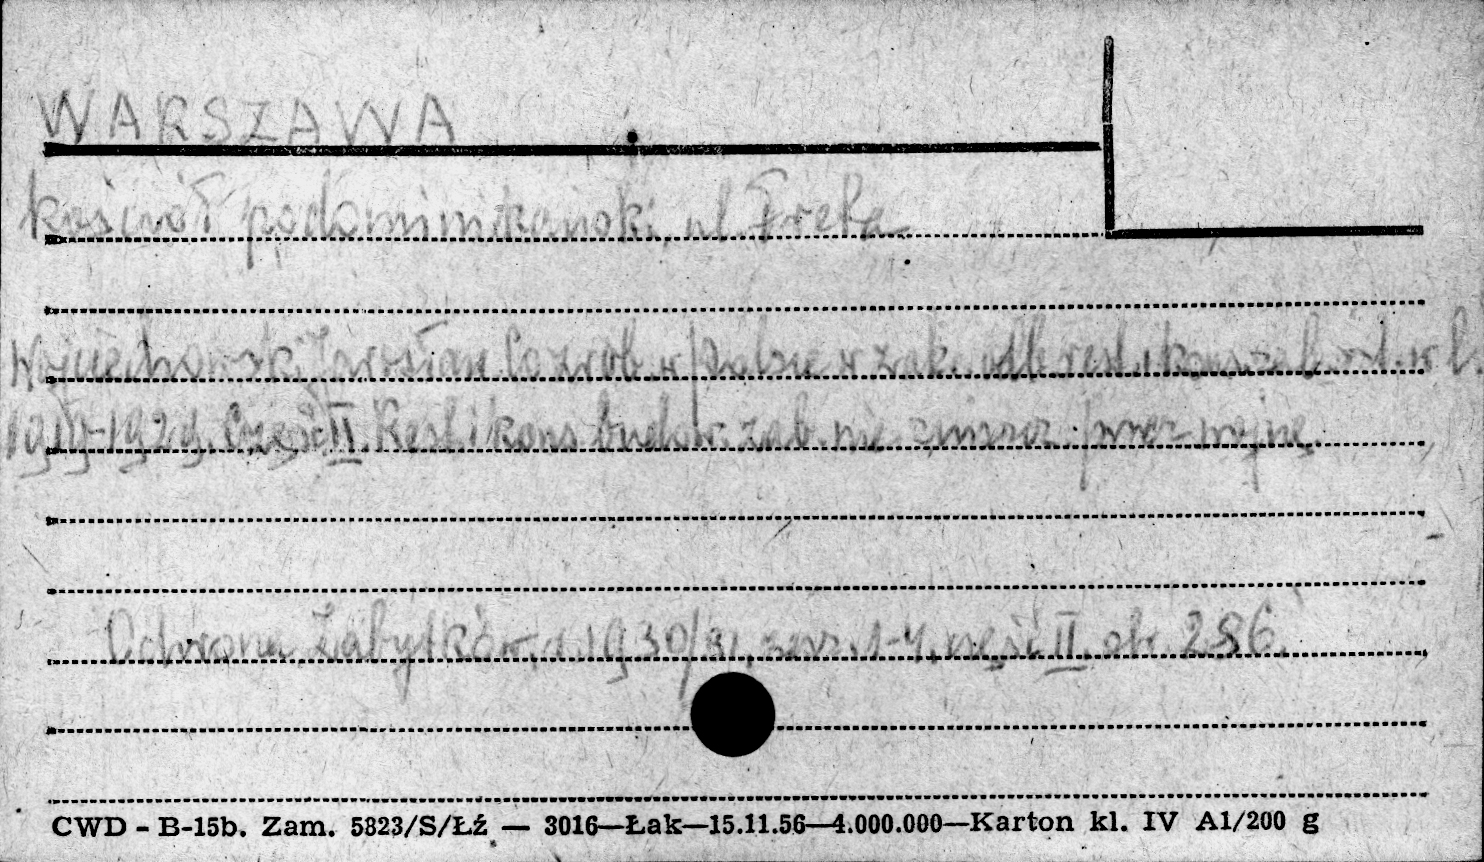 WARSZAWA
kościół podominikański, ul. Freta
Wojciechowski Jarosław Co zrob. w Polsce w zak. odb. rest. i kons. zab. szt. w l.
1919-1929. Część II. Rest. i kons. budow. zab. nie zniszcz. przez wojnę.
Ochrona Zabytków, 1930/31, zesz. 1-4, część II, str. 286.
CWD - B-15b. Zam. 5823/S/Łź — 3016—Łak—15.11.56—4.000.000—Karton kl. IV A1/200 g